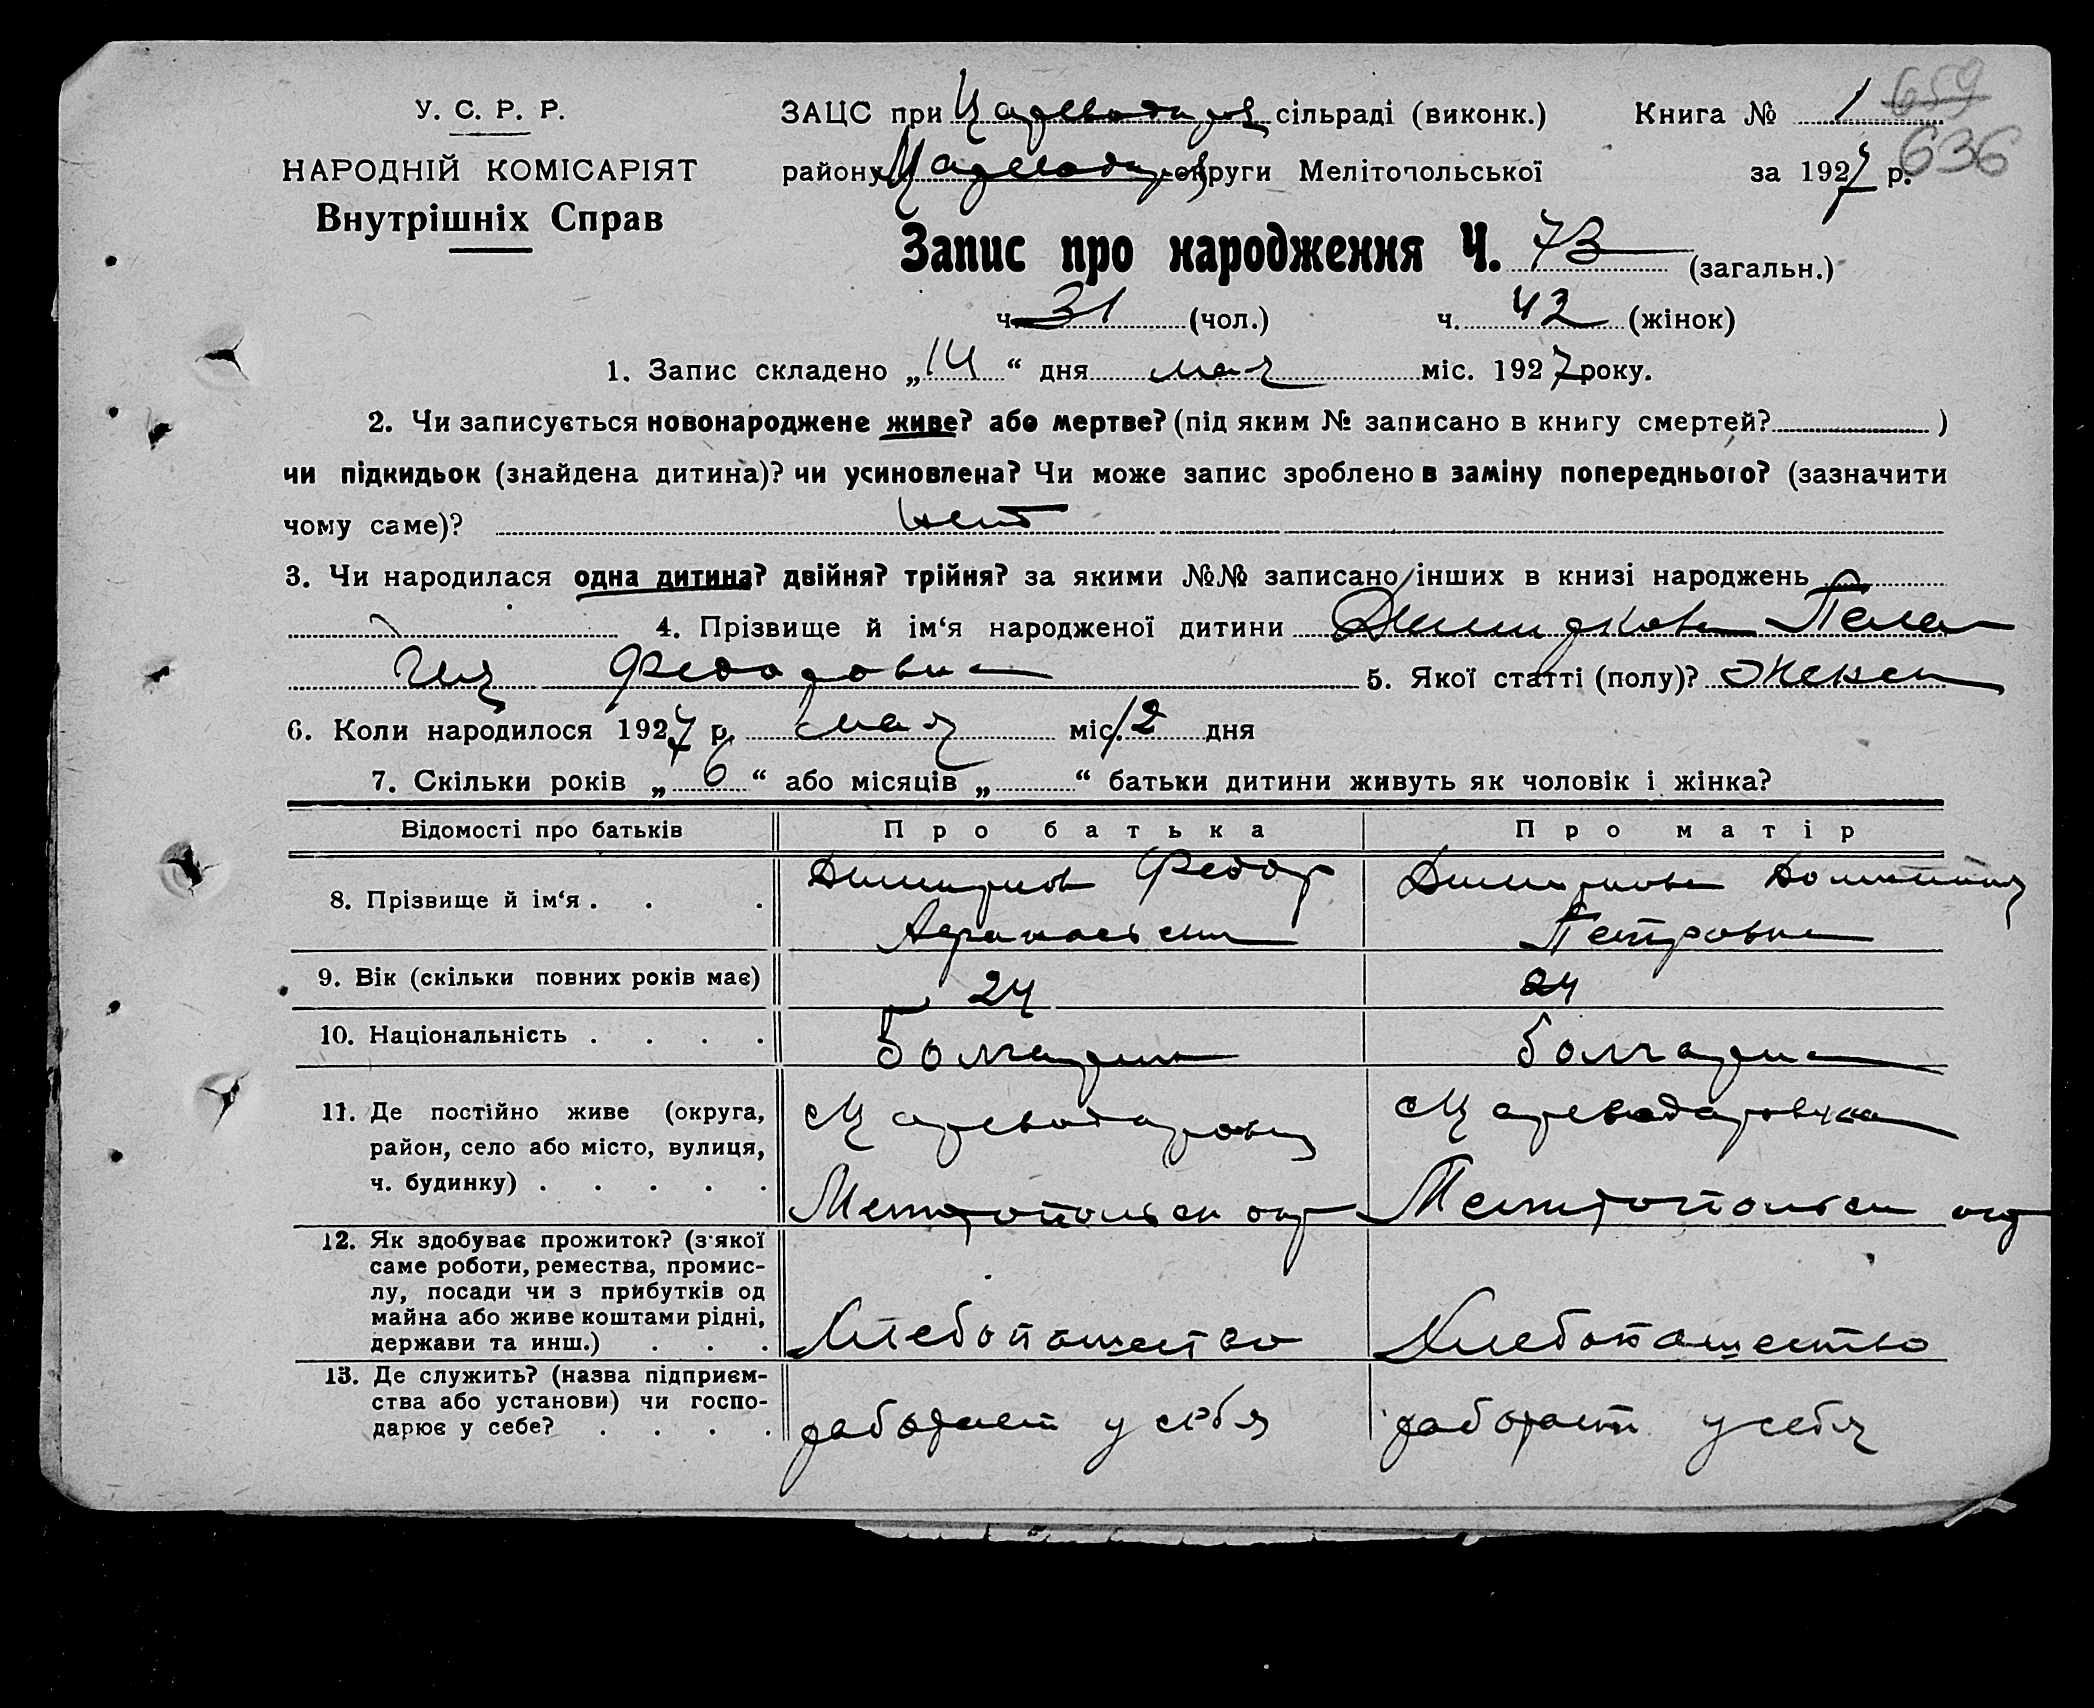 У. С. Р. Р.
НАРОДНІЙ КОМІСАРІЯТ
Внутрішніх Справ
ЗАЦС при Цареводаров сільраді (виконк.) Книга № 1 659
району Цареводаров округи Мелітопольської за 1927 р. 636
Запис про народження Ч. 73 (загальн.)
ч. 31 (чол.) ч. 42 (жінок)
1. Запис складено „14“ дня мая міс. 1927 року.
2. Чи записується новонароджене живе? або мертве? (під яким № записано в книгу смертей? )
чи підкидьок (знайдена дитина)? чи усиновлена? Чи може запис зроблено в заміну попереднього? (зазначити
чому саме)? нет
3. Чи народилася одна дитина? двійня? трійня? за якими №№ записано інших в книзі народжень
4. Прізвище й ім‘я народженої дитини Пела
гия Федоровна 5. Якої статті (полу)? Женск
6. Коли народилося 1927 р. мая міс. 12 дня
7. Скільки років „6“ або місяців „ “ батьки дитини живуть як чоловік і жінка?
Відомості про батьків Про батька Про матір
8. Прізвище й ім‘я . . . Федор
Петровна
9. Вік (скільки повних років має) 24 24
10. Національність . . . . Болгарин болгарка
11. Де постійно живе (округа,
район, село або місто, вулиця,
ч. будинку) . . . . .
Мелитопольск окр Мелитопольск окр
12. Як здобуває прожиток? (з'якої
саме роботи, ремества, промис-
лу, посади чи з прибутків од
майна або живе коштами рідні,
держави та инш.) . . . Хлебопашество Хлебопашество
13. Де служить? (назва підприєм-
ства або установи) чи госпо-
дарює у себе? . . . . работает у себя работает у себя